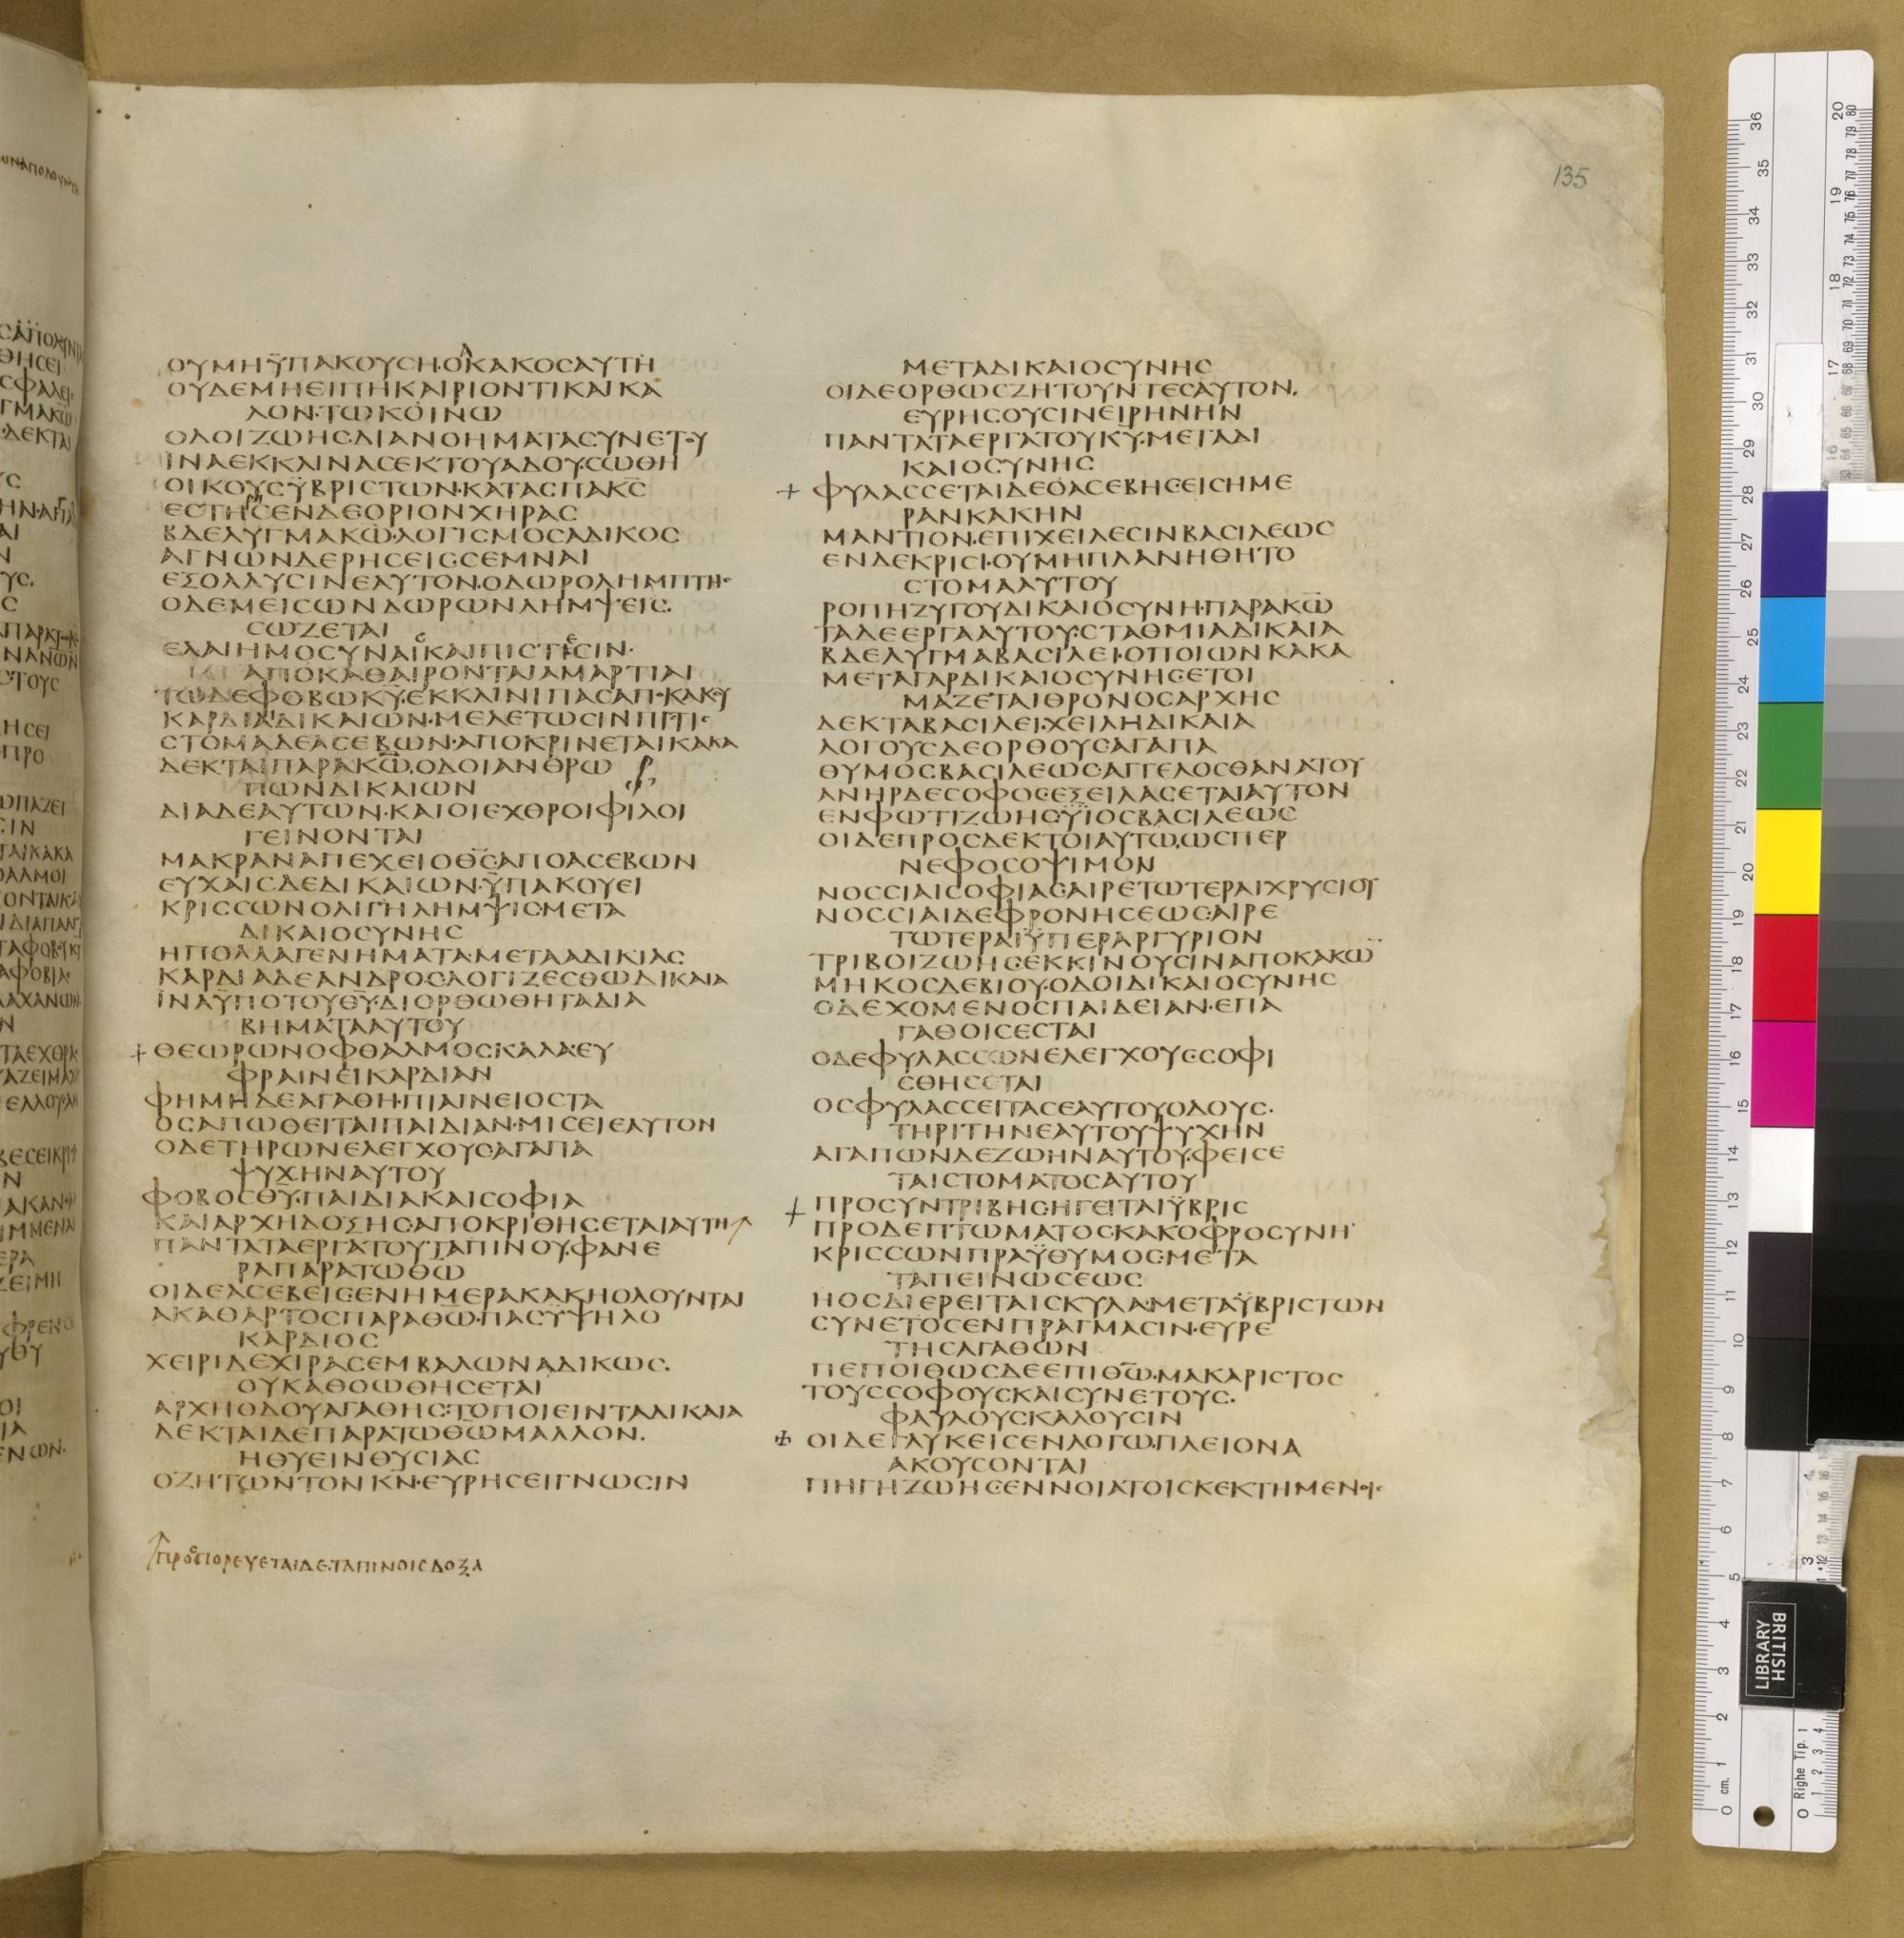 135
ΟΥΜΗΫΠΑΚΟΥCΗ·ΟΚΑΚΟCΑΥΤΗ
ΟΥΔΕΜΗΕΙΠΗΚΑΙΡΙΟΝΤΙΚΑΙΚΑ
ΛΟΝ·ΤΩΚΟΙΝΩ
ΟΔΟΙΖΩΗC·ΔΙΑΝΟΗΜΑΤΑCΥΝΕΤΟΥ
ΙΝΑΕΚΚΛΙΝΑCΕΚΤΟΥΑΔΟΥ·CΩΘΗ
ΟΙΚΟΥCΫΒΡΙCΤΩΝ·ΚΑΤΑCΠΑΚC
ΕCΤΗCΕΝΔΕΟΡΙΟΝΧΗΡΑC
ΒΔΕΛΥΓΜΑΚΩ·ΛΟΓΙCΜΟCΑΔΙΚΟC
ΑΓΝΩΝΔΕΡΗCΕΙC·CΕΜΝΑΙ
ΕΞΟΛΛΥCΙΝΕΑΥΤΟΝ·ΟΔΩΡΟΛΗΜΠΤΗC
ΟΔΕΜΕΙCΩΝΔΩΡΩΝΛΗΜΨΕΙC·
CΩΖΕΤΑΙ
ΕΛΑΙΗΜΟCΥΝΑΙCΚΑΙΠΙCΤΕCΙΝ·
ΑΠΟΚΑΘΑΙΡΟΝΤΑΙΑΜΑΡΤΙΑΙ
ΤΩΔΕΦΟΒΩΚΥ·ΕΚΚΛΙΝΙΠΑCΑΠΟΚΑΚΟΥ
ΚΑΡΔΙΑΙΔΙΚΑΙΩΝ·ΜΕΛΕΤΩCΙΝΠΙCΤΙC
CΤΟΜΑΔΕΑCΕΒΩΝ·ΑΠΟΚΡΙΝΕΤΑΙΚΑΚΑ
ΔΕΚΤΑΙΠΑΡΑΚΩ·ΟΔΟΙΑΝΘΡΩ
ΠΩΝΔΙΚΑΙΩΝ
ΔΙΑΔΕΑΥΤΩΝ·ΚΑΙΟΙΕΧΘΡΟΙΦΙΛΟΙ
ΓΕΙΝΟΝΤΑΙ
ΜΑΚΡΑΝΑΠΕΧΕΙΟΘC·ΑΠΟΑCΕΒΩΝ
ΕΥΧΑΙCΔΕΔΙΚΑΙΩΝ·ΫΠΑΚΟΥΕΙ
ΚΡΙCCΩΝΟΛΙΓΗΛΗΜΨΙC·ΜΕΤΑ
ΔΙΚΑΙΟCΥΝΗC
ΗΠΟΛΛΑΓΕΝΗΜΑΤΑ·ΜΕΤΑΑΔΙΚΙΑC
ΚΑΡΔΙΑΔΕΑΝΔΡΟC·ΛΟΓΙΖΕCΘΩΔΙΚΑΙΑ
ΙΝΑΫΠΟΤΟΥΘΥ·ΔΙΟΡΘΩΘΗΤΑΔΙΑ
ΒΗΜΑΤΑΑΥΤΟΥ
ΘΕΩΡΩΝΟΦΘΑΛΜΟCΚΑΛΑ·ΕΥ
ΦΡΑΙΝΕΙΚΑΡΔΙΑΝ
ΦΗΜΗΔΕΑΓΑΘΗ·ΠΙΑΙΝΕΙΟCΤΑ
ΟCΑΠΩΘΕΙΤΑΙΠΑΙΔΙΑΝ·ΜΙCΕΙΕΑΥΤΟΝ
ΟΔΕΤΗΡΩΝΕΛΕΓΧΟΥCΑΓΑΠΑ
ΨΥΧΗΝΑΥΤΟΥ
ΦΟΒΟCΘΥ·ΠΑΙΔΙΑΚΑΙCΟΦΙΑ
ΚΑΙΑΡΧΗΔΟΞΗC·ΑΠΟΚΡΙΘΗCΕΤΑΙΑΥΤΗ
ΠΑΝΤΑΤΑΕΡΓΑΤΟΥΤΑΠΙΝΟΥ·ΦΑΝΕ
ΡΑΠΑΡΑΤΩΘΩ
ΟΙΔΕΑCΕΒΕΙC·ΕΝΗΜΕΡΑΚΑΚΗΟΛΟΥΝΤΑΙ
ΑΚΑΘΑΡΤΟCΠΑΡΑΘΩ·ΠΑCΫΨΗΛΟ
ΚΑΡΔΙΟC
ΧΕΙΡΙΔΕΧΙΡΑCΕΜΒΑΛΩΝΑΔΙΚΩC·
ΟΥΚΑΘΟΩΘΗCΕΤΑΙ
ΑΡΧΗΟΔΟΥΑΓΑΘΗC·ΤΟΠΟΙΕΙΝΤΑΔΙΚΑΙΑ
ΔΕΚΤΑΙΔΕΠΑΡΑΤΩΘΩΜΑΛΛΟΝ·
ΗΘΥΕΙΝΘΥCΙΑC
ΟΖΗΤΩΝΤΟΝΚΝ·ΕΥΡΗCΕΙΓΝΩCΙΝ
ΠΡΟCΠΟΡΕΥΕΤΑΙΔΕΤΑΠΙΝΟΙCΔΟΞΑ
ΜΕΤΑΔΙΚΑΙΟCΥΝΗC
ΟΙΔΕΟΡΘΩCΖΗΤΟΥΝΤΕCΑΥΤΟΝ·
ΕΥΡΗCΟΥCΙΝΕΙΡΗΝΗΝ
ΠΑΝΤΑΤΑΕΡΓΑΤΟΥΚΥ·ΜΕΤΑΔΙ
ΚΑΙΟCΥΝΗC
ΦΥΛΑCCΕΤΑΙΔΕΟΑCΕΒΗC·ΕΙCΗΜΕ
ΡΑΝΚΑΚΗΝ
ΜΑΝΤΙΟΝ·ΕΠΙΧΕΙΛΕCΙΝΒΑCΙΛΕΩC
ΕΝΔΕΚΡΙCΙ·ΟΥΜΗΠΛΑΝΗΘΗΤΟ
CΤΟΜΑΑΥΤΟΥ
ΡΟΠΗΖΥΓΟΥΔΙΚΑΙΟCΥΝΗ·ΠΑΡΑΚΩ
ΤΑΔΕΕΡΓΑΑΥΤΟΥ·CΤΑΘΜΙΑΔΙΚΑΙΑ
ΒΔΕΛΥΓΜΑΒΑCΙΛΕΙ·ΟΠΟΙΩΝΚΑΚΑ
ΜΕΤΑΓΑΡΔΙΚΑΙΟCΥΝΗC·ΕΤΟΙ
ΜΑΖΕΤΑΙΘΡΟΝΟCΑΡΧΗC
ΔΕΚΤΑΒΑCΙΛΕΙ·ΧΕΙΛΗΔΙΚΑΙΑ
ΛΟΓΟΥCΔΕΟΡΘΟΥCΑΓΑΠΑ
ΘΥΜΟCΒΑCΙΛΕΩC·ΑΓΓΕΛΟCΘΑΝΑΤΟΥ
ΑΝΗΡΔΕCΟΦΟC·ΕΞΕΙΛΑCΕΤΑΙΑΥΤΟΝ
ΕΝΦΩΤΙΖΩΗC·ΫΙΟCΒΑCΙΛΕΩC
ΟΙΔΕΠΡΟCΔΕΚΤΟΙΑΥΤΩ·ΩCΠΕΡ
ΝΕΦΟCΟΨΙΜΟΝ
ΝΟCCΙΑΙCΟΦΙΑC·ΑΙΡΕΤΩΤΕΡΑΙΧΡΥCΙΟΥ
ΝΟCCΙΑΙΔΕΦΡΟΝΗCΕΩC·ΑΙΡΕ
ΤΩΤΕΡΑΙΫΠΕΡΑΡΓΥΡΙΟΝ
ΤΡΙΒΟΙΖΩΗC·ΕΚΚΙΝΟΥCΙΝΑΠΟΚΑΚΩ
ΜΗΚΟCΔΕΒΙΟΥ·ΟΔΟΙΔΙΚΑΙΟCΥΝΗC
ΟΔΕΧΟΜΕΝΟCΠΑΙΔΕΙΑΝ·ΕΠΑ
ΓΑΘΟΙCΕCΤΑΙ
ΟΔΕΦΥΛΑCCΩΝΕΛΕΓΧΟΥC·CΟΦΙ
CΘΗCΕΤΑΙ
ΟCΦΥΛΑCCΕΙΤΑCΕΑΥΤΟΥΟΔΟΥC·
ΤΗΡΙΤΗΝΕΑΥΤΟΥΨΥΧΗΝ
ΑΓΑΠΩΝΔΕΖΩΗΝΑΥΤΟΥ·ΦΕΙCΕ
ΤΑΙCΤΟΜΑΤΟCΑΥΤΟΥ
ΠΡΟCΥΝΤΡΙΒΗC·ΗΓΕΙΤΑΙΫΒΡΙC
ΠΡΟΔΕΠΤΩΜΑΤΟC·ΚΑΚΟΦΡΟCΥΝΗ
ΚΡΙCCΩΝΠΡΑΫΘΥΜΟC·ΜΕΤΑ
ΤΑΠΕΙΝΩCΕΩC
ΗΟCΔΙΕΡΕΙΤΑΙCΚΥΛΑ·ΜΕΤΑΫΒΡΙCΤΩΝ
CΥΝΕΤΟCΕΝΠΡΑΓΜΑCΙΝ·ΕΥΡΕ
ΤΗCΑΓΑΘΩΝ
ΠΕΠΟΙΘΩCΔΕΕΠΙΘΩ·ΜΑΚΑΡΙCΤΟC
ΤΟΥCCΟΦΟΥCΚΑΙCΥΝΕΤΟΥC·
ΦΑΥΛΟΥCΚΑΛΟΥCΙΝ
ΟΙΔΕΓΛΥΚΕΙCΕΝΛΟΓΩ·ΠΛΕΙΟΝΑ
ΑΚΟΥCΟΝΤΑΙ
ΠΗΓΗΖΩΗC·ΕΝΝΟΙΑΤΟΙCΚΕΚΤΗΜΕΝΟΙC
BRITISH
LIBRARY
0 cm. 1 2 3 4 5 6 7 8 9 10 11 12 13 14 15 16 17 18 19 20 21 22 23 24 25 26 27 28 29 30 31 32 33 34 35 36
0 Righe Tip. 1